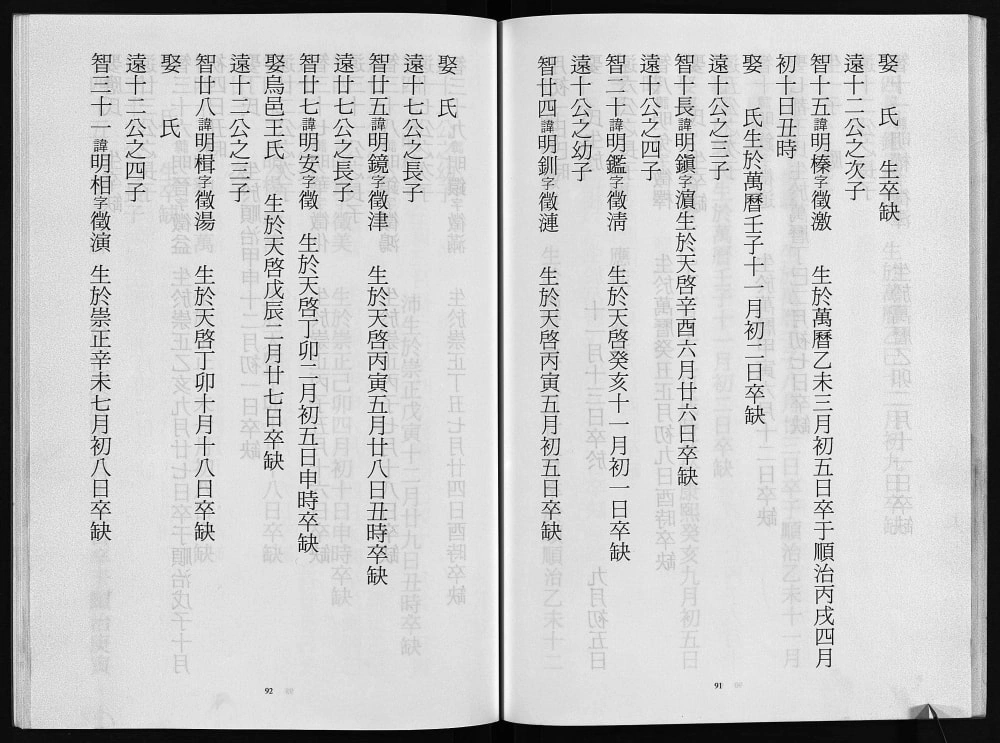 娶 氏 生卒缺
遠十二公之次子
智十五諱明榛字徵激 生於萬曆乙未三月初五日卒于順治丙戌四月
初十日丑時
娶 氏生於萬曆壬子十一月初二日卒缺
遠十公之三子
智十長諱明鎭字濵生於天啓辛酉六月廿六日卒缺
遠十公之四子
智二十諱明鑑字徵淸 生於天啓癸亥十一月初一日卒缺
遠十公之幼子
智廿四諱明釧字徵漣 生於天啓丙寅五月初五日卒缺
91
娶 氏
遠十七公之長子
智廿五諱明鏡字徵津 生於天啓丙寅五月廿八日丑時卒缺
遠廿七公之長子
智廿七諱明安字徵 生於天啓丁卯二月初五日申時卒缺
娶烏邑王氏 生於天啓戊辰二月廿七日卒缺
遠十二公之三子
智廿八諱明楫字徵湯 生於天啓丁卯十月十八日卒缺
娶 氏
遠十二公之四子
智三十一諱明相字徵演 生於崇正辛未七月初八日卒缺
92